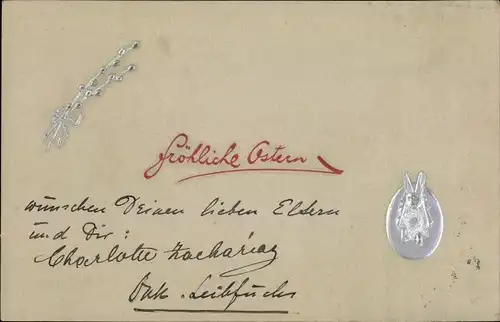 Fröhliche Ostern
wünschen Deinen lieben Eltern
und Dir:
Charlotte Zachariae
Leibfuchs